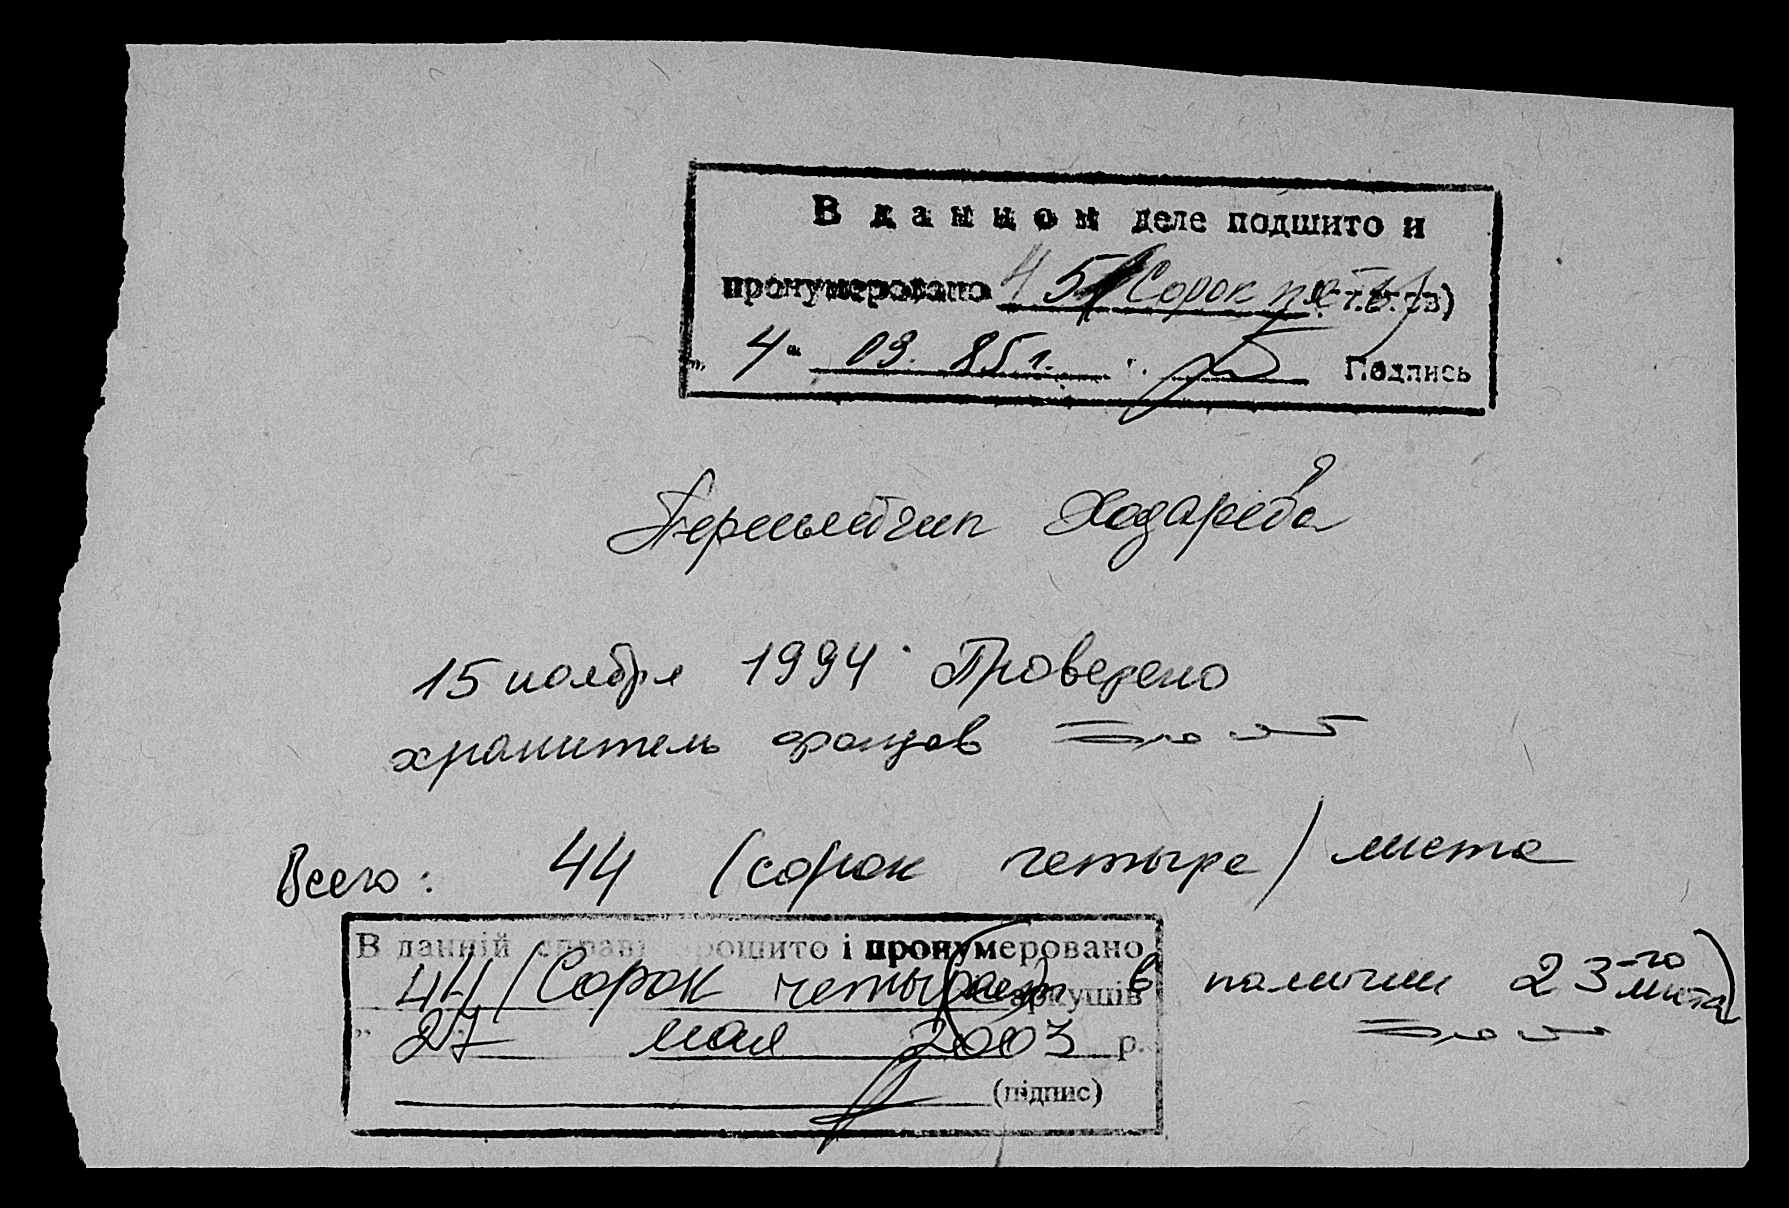 В данном деле подшито и
пронумеровано 45 (Сорок пять) листов)
„ 4 “ 09. 85 г. Подпись
15 ноября 1994 Проведено
хранитель фондов
Всего: 44 (сорок четыре) листа
В данній справі прошито і пронумеровано
44 (Сорок четыре) аркушів
" 27 мая 2003 р.
(підпис)
(нет в наличии 23-го листа)